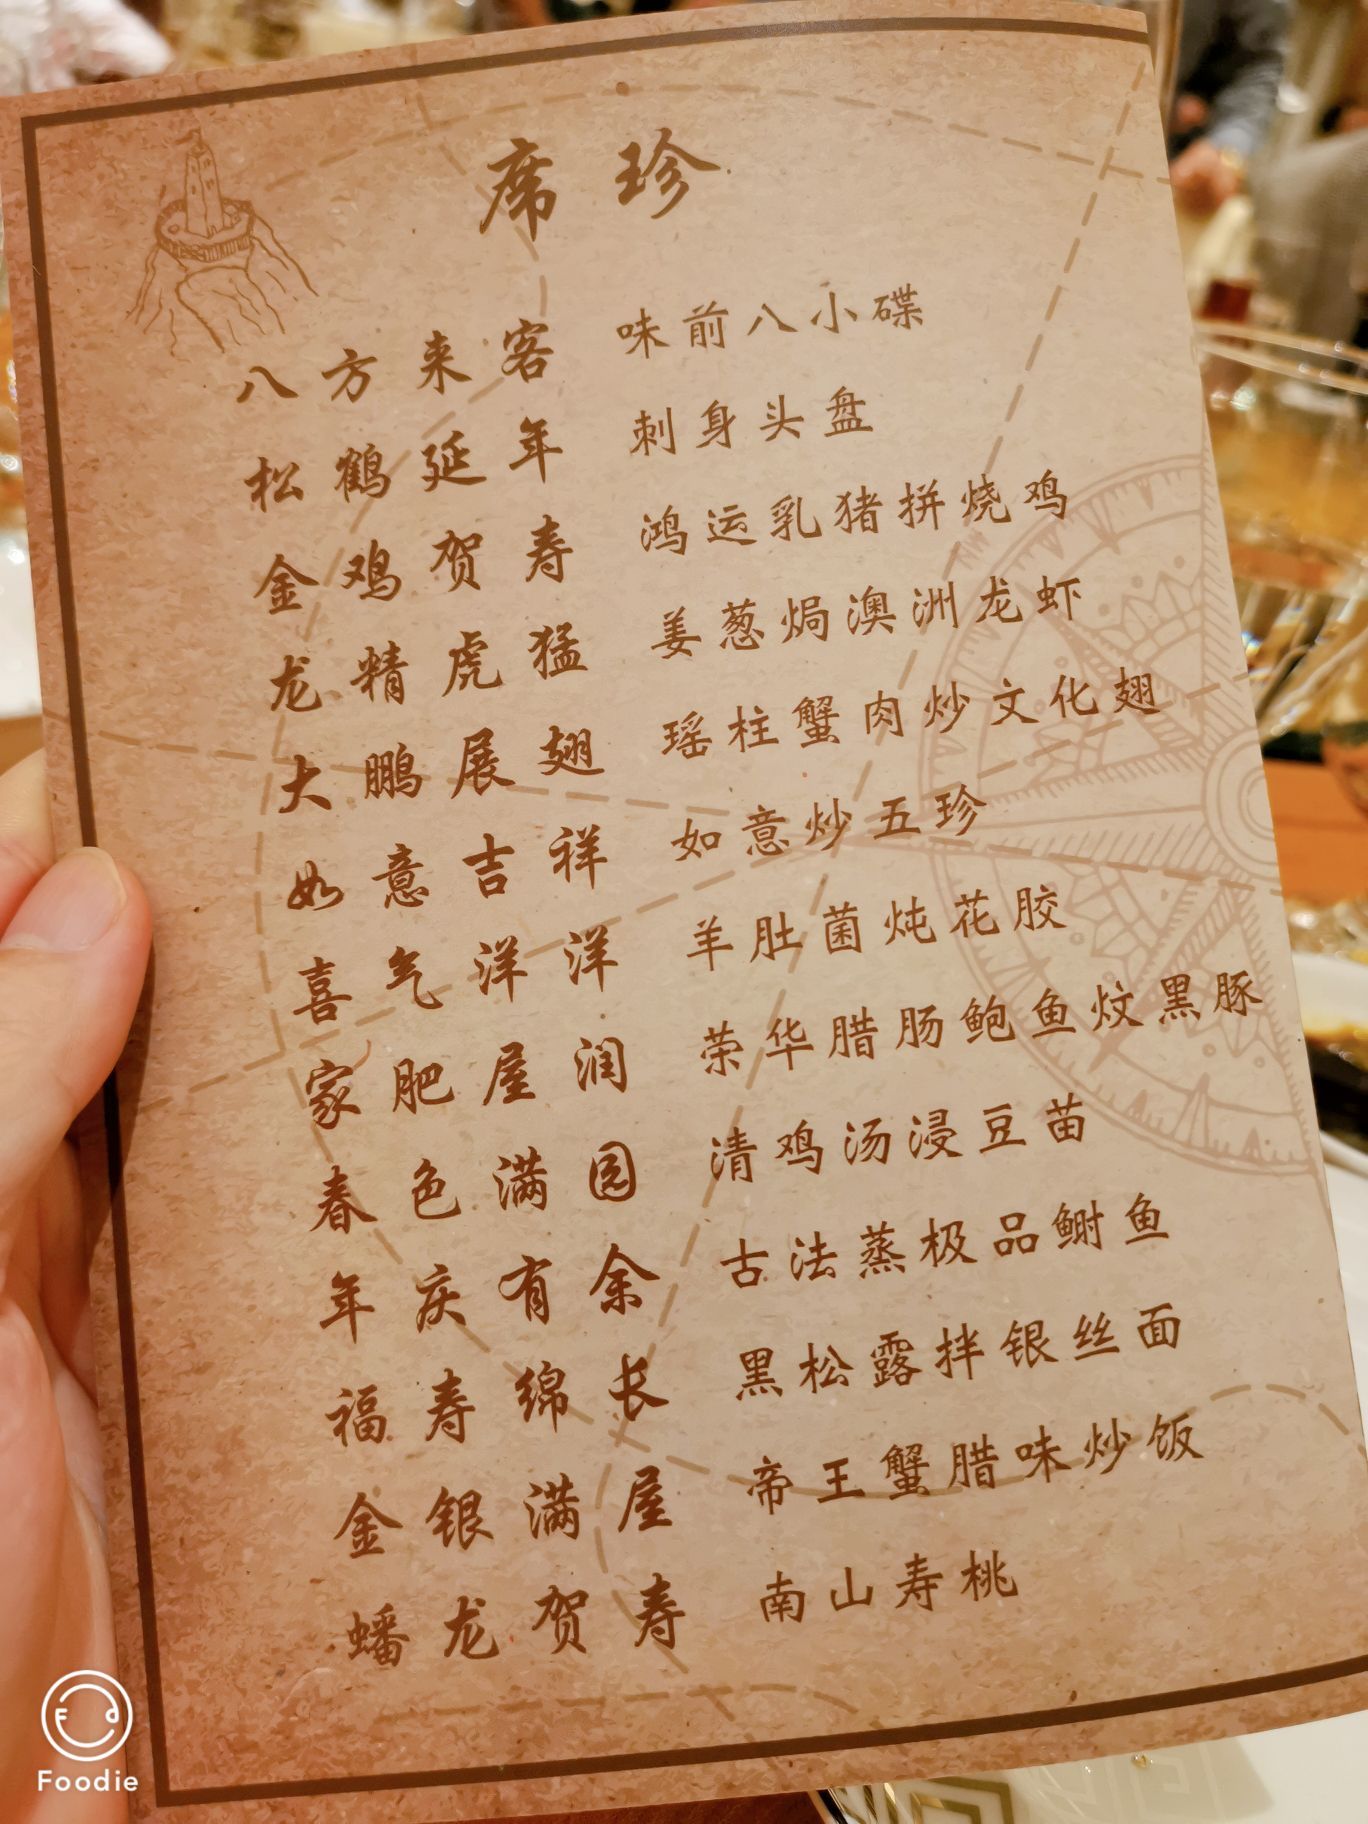 席珍
八方来客 味前八小碟
松鹤延年 刺身头盘
金鸡贺寿 鸿运乳猪拼烧鸡
龙精虎猛 姜葱焗澳洲龙虾
大鹏展翅 瑶柱蟹肉炒文化翅
如意吉祥 如意炒五珍
喜气洋洋 羊肚菌炖花胶
家肥屋润 荣华腊肠鲍鱼炆黑豚
春色满园 清鸡汤浸豆苗
年庆有余 古法蒸极品鲥鱼
福寿绵长 黑松露拌银丝面
金银满屋 帝王蟹腊味炒饭
蟠龙贺寿 南山寿桃
Foodie